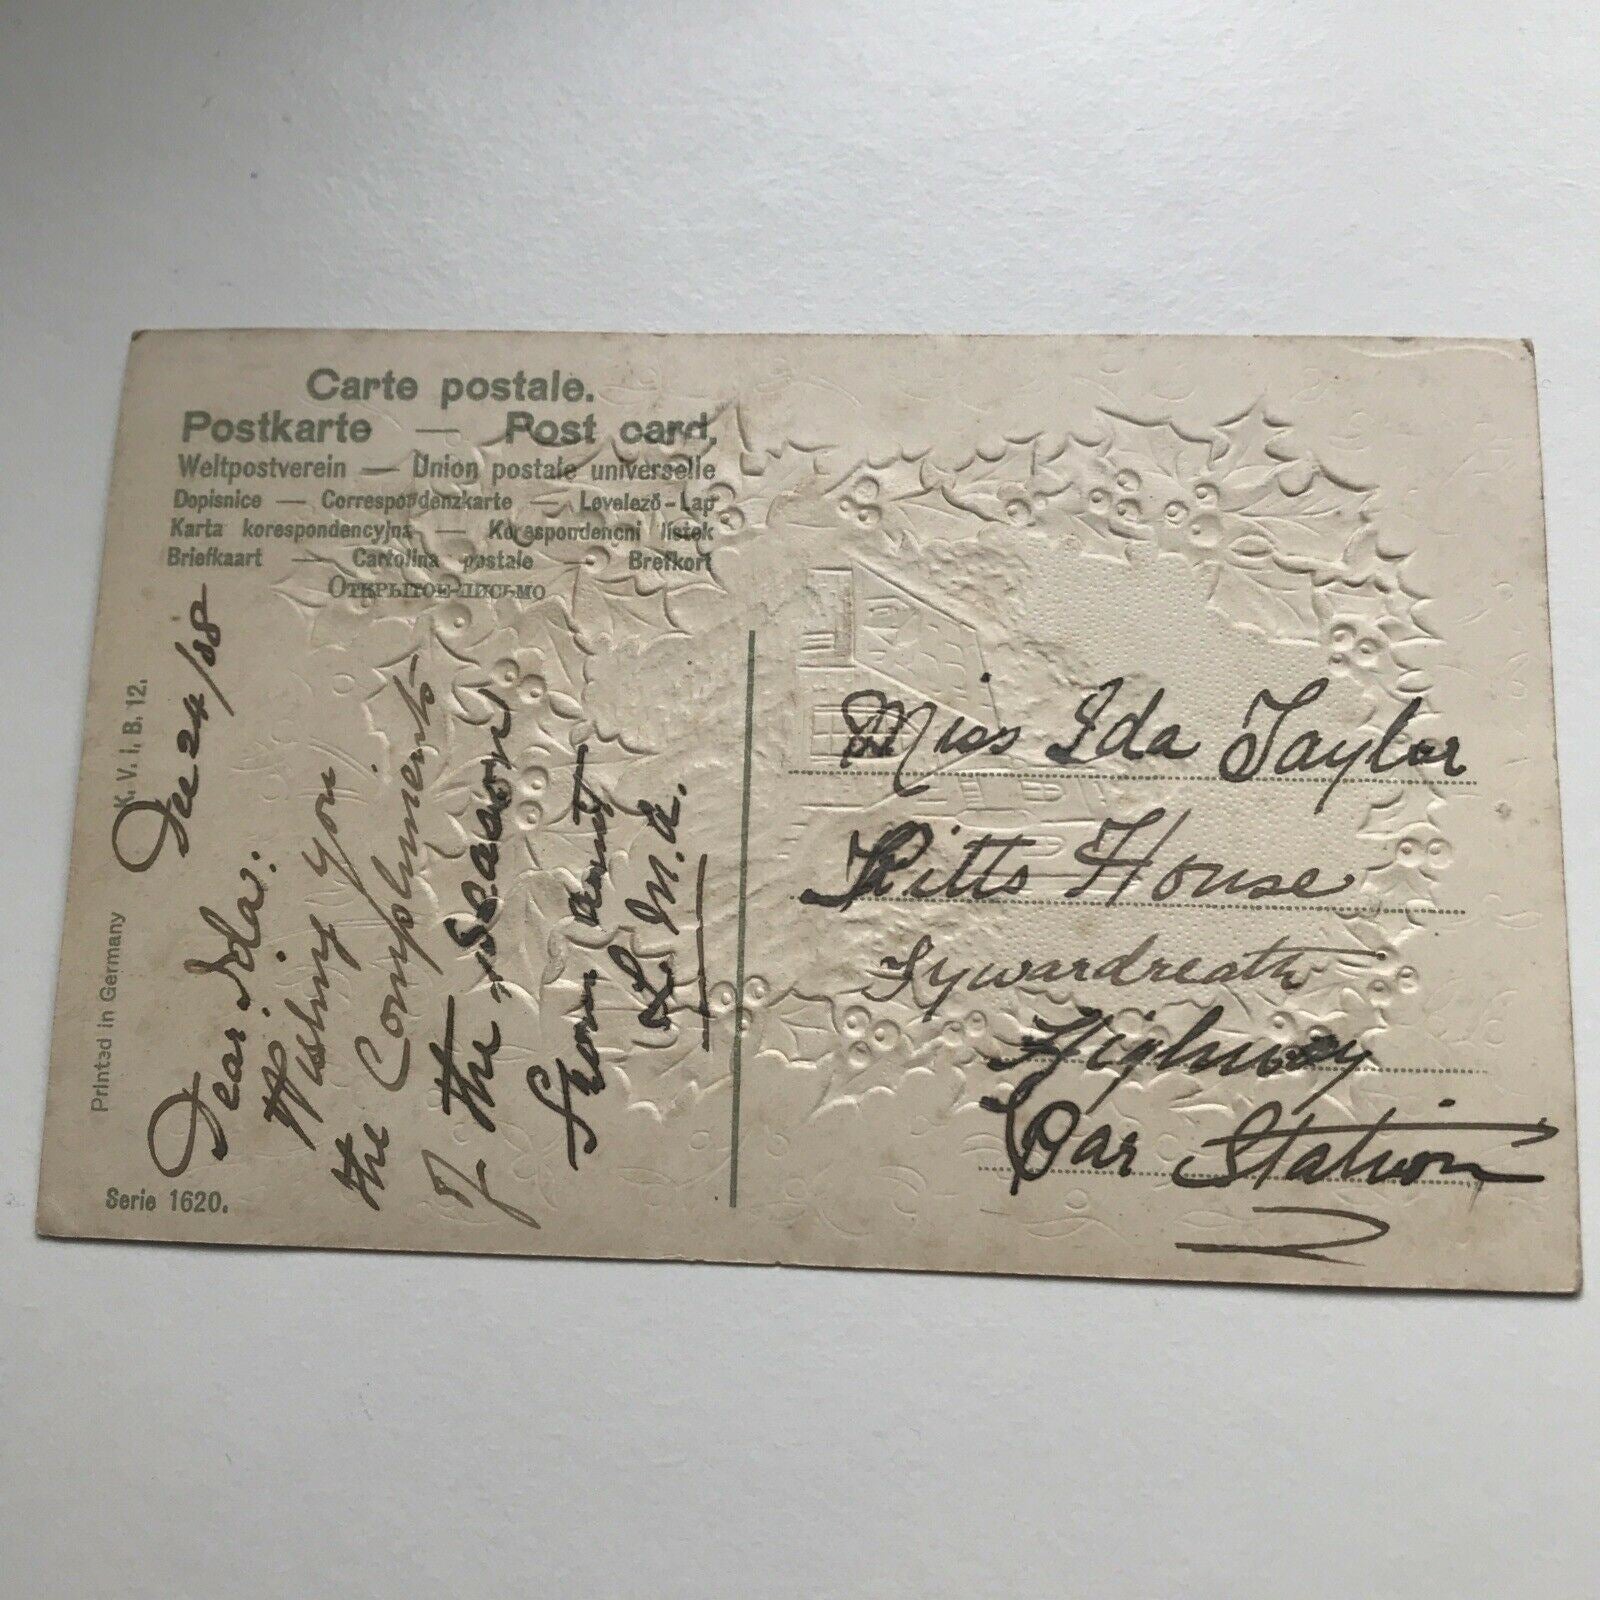 Carte postale.
Postkarte — Post card.
Weltpostverein — Union postale universelle
Dopisnice — Correspondenzkarte — Levelező-Lap
Karta korespondencyjna — Korespondencni listek
Briefkaart — Cartolina postale — Brefkort
Открытое-письмо
K. V. I. B. 12.
Printed in Germany
Serie 1620.
Dec 24/08
Dear Ida:
Wishing you
the Compliments
of the season
From aunty
L. M. A.
Miss Ida Taylor
Pitts House
Tywardreath
Highway
Par Station